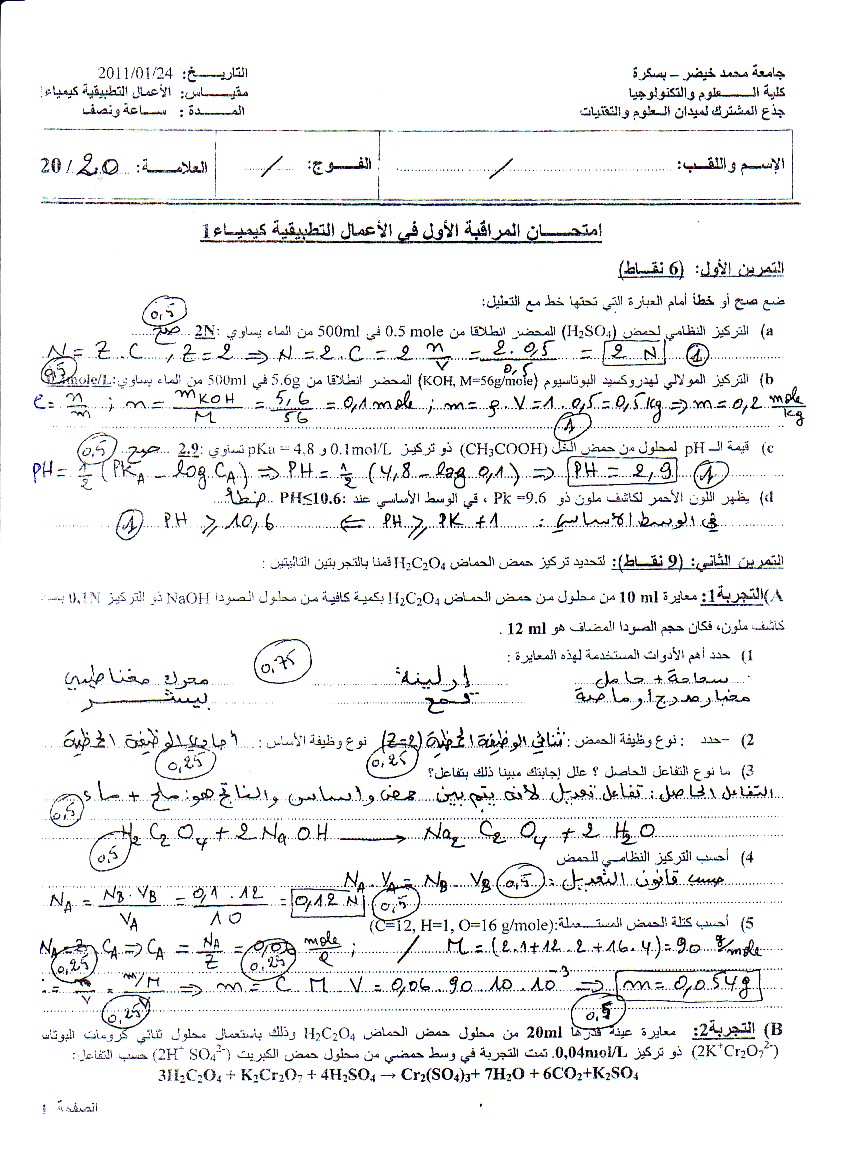 جامعة محمد خيضر – بسكرة
كلية العلوم والتكنولوجيا
جذع المشترك لميدان العلوم والتقنيات
التاريخ: 2011/01/24
مقياس: الأعمال التطبيقية كيمياء1
المدة: ساعة ونصف
الإسم واللقب: /
الفوج: /
العلامة: 20 / 20
امتحان المراقبة الأول في الأعمال التطبيقية كيمياء1
التمرين الأول: (6 نقاط)
ضع صح أو خطأ أمام العبارة التي تحتها خط مع التعليل:
0,5
a) التركيز النظامي لحمض (H2SO4) المحضر انطلاقا من 0.5 mole في 500ml من الماء يساوي :2N صح
N = Z . C , Z = 2 ⇒ N = 2 . C = 2 n/V = 2 . 0,5 / 0,5 = 2 N 1
b) التركيز المولالي لهيدروكسيد البوتاسيوم (KOH, M=56g/mole) المحضر انطلاقا من 5.6g في 500ml من الماء يساوي: mole/L
0,5
= n/m ; n = mKOH/M = 5,6/56 = 0,1 mole ; m = ρ . V = 1 . 0,5 = 0,5 kg ⇒ m = 0,2 mole/kg
1
c) قيمة الـ pH لمحلول من حمض الخل (CH3COOH) ذو تركيز 0.1mol/L و pKa = 4.8 تساوي: 2.9 صح 0,5
PH = 1/2 (PKA - log CA) ⇒ PH = 1/2 (4,8 - log 0,1) ⇒ PH = 2,9 1
d) يظهر اللون الأحمر لكاشف ملون ذو Pk =9.6 ، في الوسط الأساسي عند :PH≤10.6 خطأ
في الوسط الأساسي : PH ⩾ PK + 1 ⇐ PH ⩾ 10,6 1
التمرين الثاني: (9 نقاط): لتحديد تركيز حمض الحماض H2C2O4 قمنا بالتجربتين التاليتين :
A)التجربة1: معايرة 10 ml من محلول من حمض الحماض H2C2O4 بكمية كافية من محلول الصودا NaOH ذو التركيز 0,1N
كاشف ملون، فكان حجم الصودا المضاف هو 12 ml .
1) حدد أهم الأدوات المستخدمة لهذه المعايرة : 0,75
سحاحة + حامل إرلينة محرك مغناطيسي
مخبار مدرج أو ماصة قمع بيشر
2) -حدد : نوع وظيفة الحمض : ثنائي الوظيفة الحمضية (Z=2) نوع وظيفة الأساس : أحادي الوظيفة
0,25 0,25
3) ما نوع التفاعل الحاصل ؟ علل إجابتك مبينا ذلك بتفاعل؟
التفاعل الحاصل : تفاعل تعديل لأنه يتم بين حمض وأساس والناتج هو: ملح + ماء
0,5
H2C2O4 + 2 NaOH ⟶ Na2 C2O4 + 2 H2O
0,5
4) أحسب التركيز النظامي للحمض
حسب قانون التعديل : NA . VA = NB . VB 0,5
NA = NB . VB / VA = 0,1 . 12 / 10 = 0,12 N 0,5
5) أحسب كتلة الحمض المستعملة:(C=12, H=1, O=16 g/mole)
NA = Z CA ⇒ CA = NA/Z = 0,06 mole/l ; / M = (2.1+12.2+16.4) = 90 g/mole
0,25 0,25
= n/V = m/M / V ⇒ m = C M V = 0,06 . 90 . 10 . 10⁻³ ⇒ m = 0,054g
0,25 0,5
B) التجربة2: معايرة عينة قدرها 20ml من محلول حمض الحماض H2C2O4 وذلك باستعمال محلول ثنائي كرومات البوتاس
(2K+Cr2O7 2-) ذو تركيز 0,04mol/L. تمت التجربة في وسط حمضي من محلول حمض الكبريت (2H+ SO4 2-) حسب التفاعل:
3H2C2O4 + K2Cr2O7 + 4H2SO4 → Cr2(SO4)3+ 7H2O + 6CO2+K2SO4
الصفحة 1